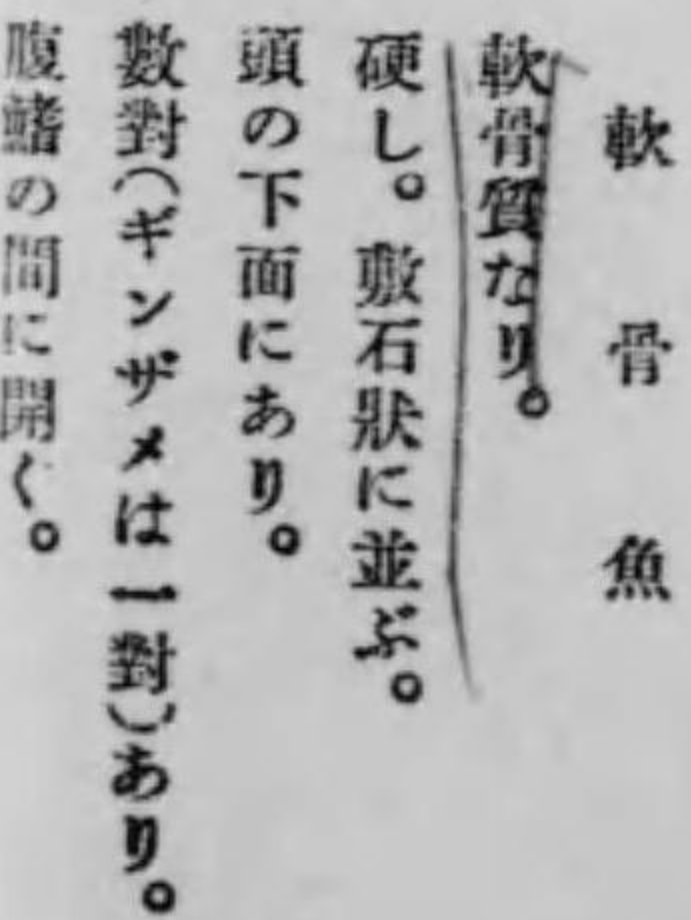 軟骨魚
軟骨質なり。
硬し。敷石狀に並ぶ。
頭の下面にあり。
數對(ギンザメは一對)あり。
腹鰭の間に開く。